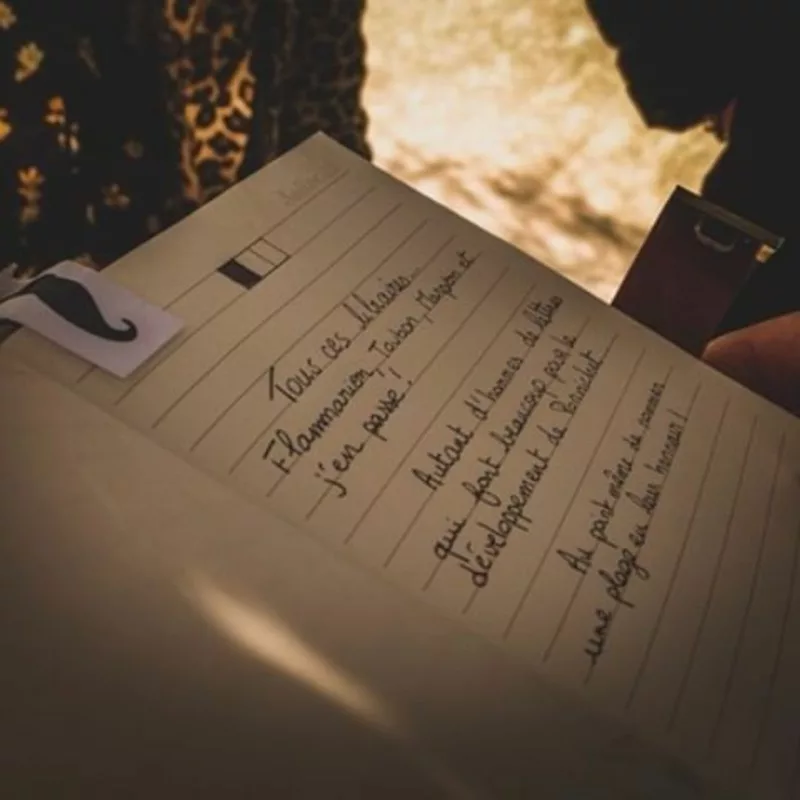 Tous ces libraires...
Flammarion, Tarbon, Magson et
j'en passe!
Autant d'hommes de lettres
qui font beaucoup pour le
développement de
Au point même de nommer
une plage en leur honneur!